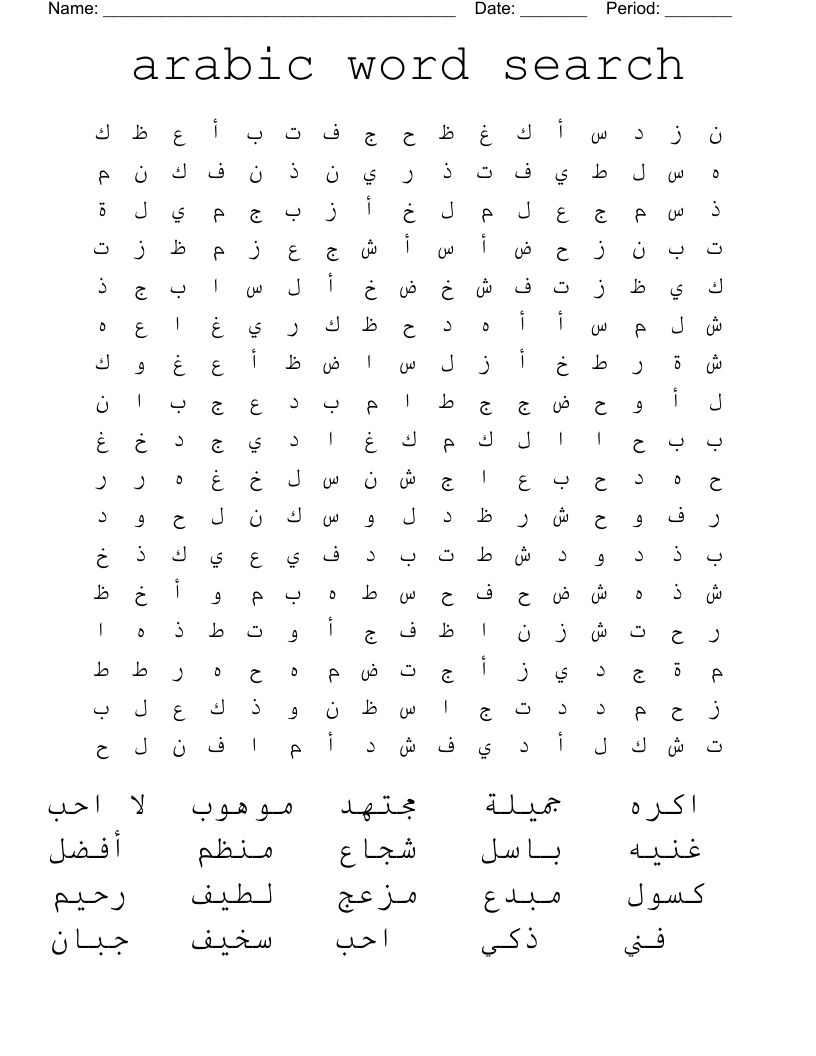 Name: _____________________________________ Date: _______ Period: _______
arabic word search
ك ظ ع أ ب ت ف ج ح ظ غ ك أ س د ز ن
م ن ك ف ن ذ ن ي ر ذ ت ف ي ط ل س ه
ة ل ي م ج ب ز أ خ ل م ل ع ج م س ذ
ت ز ظ م ز ع ج ش أ س أ ض ح ز ن ب ت
ذ ج ب ا س ل أ خ ض خ ش ف ت ز ظ ي ك
ه ع ا غ ي ر ك ظ ح د ه أ أ س م ل ش
ك و غ ع أ ظ ض ا س ل ز أ خ ط ر ة ش
ن ا ب ج ع د ب م ا ط ج ج ض ح و أ ل
غ خ د ج ي د ا غ ك م ك ل ا ا ح ب ب
ر ر ه غ خ ل س ن ش ج ا ع ب ح د ه ح
د و ح ل ن ك س و ل د ظ ر ش ح و ف ر
خ ذ ك ي ع ي ف د ب ت ط ش د و د ذ ب
ظ خ أ و م ب ه ط س ح ف ح ض ش ه ذ ش
ا ه ذ ط ت و أ ج ف ظ ا ن ز ش ت ح ر
ط ط ر ه ح ه م ض ت ج أ ز ي د ج ة م
ب ل ع ك ذ و ن ظ س ا ج ت د د م ح ز
ح ل ن ف ا م أ د ش ف ي د أ ل ك ش ت
اكره جميلة مجتهد موهوب لا احب
غنيه باسل شجاع منظم أفضل
كسول مبدع مزعج لطيف رحيم
فني ذكي احب سخيف جبان